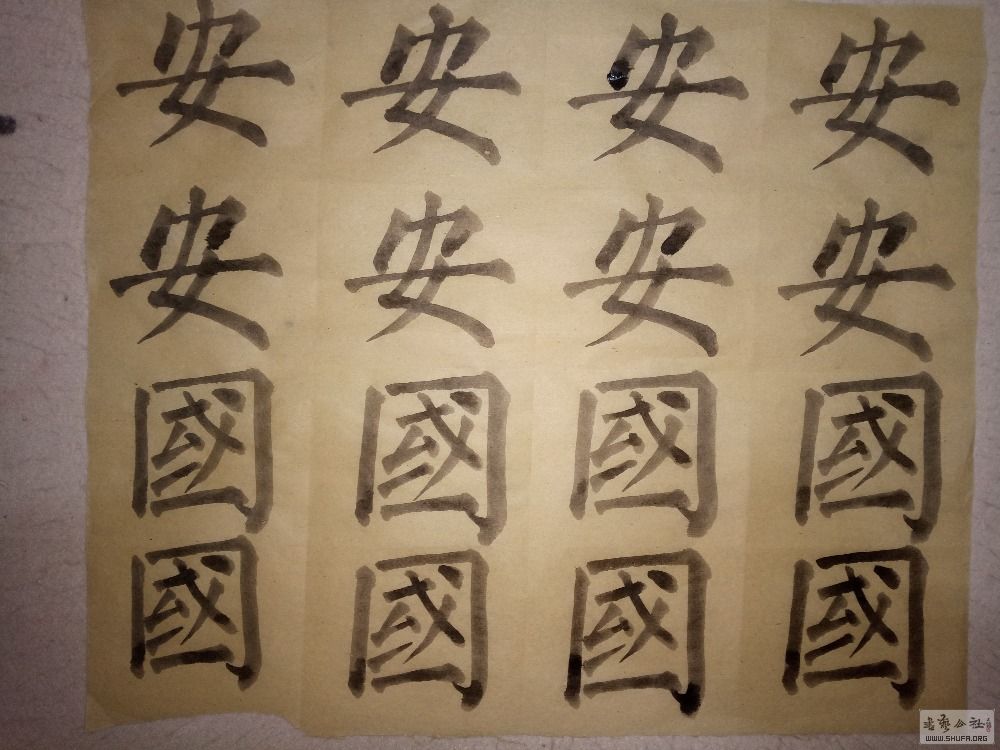 安安安安
安安安安
國國國國
國國國國
書藝公社
WWW.SHUFA.ORG